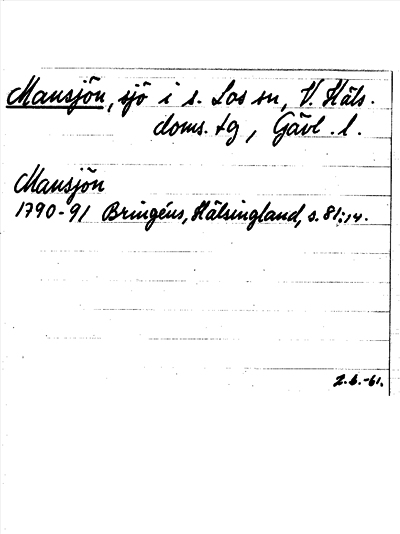 Mansjön, sjö i s. Los sn, V. Häls.
doms. tg, Gävl. l.
Mansjön
1790-91 Bringéus, Hälsingland, s. 81:14.
2.6.-61.